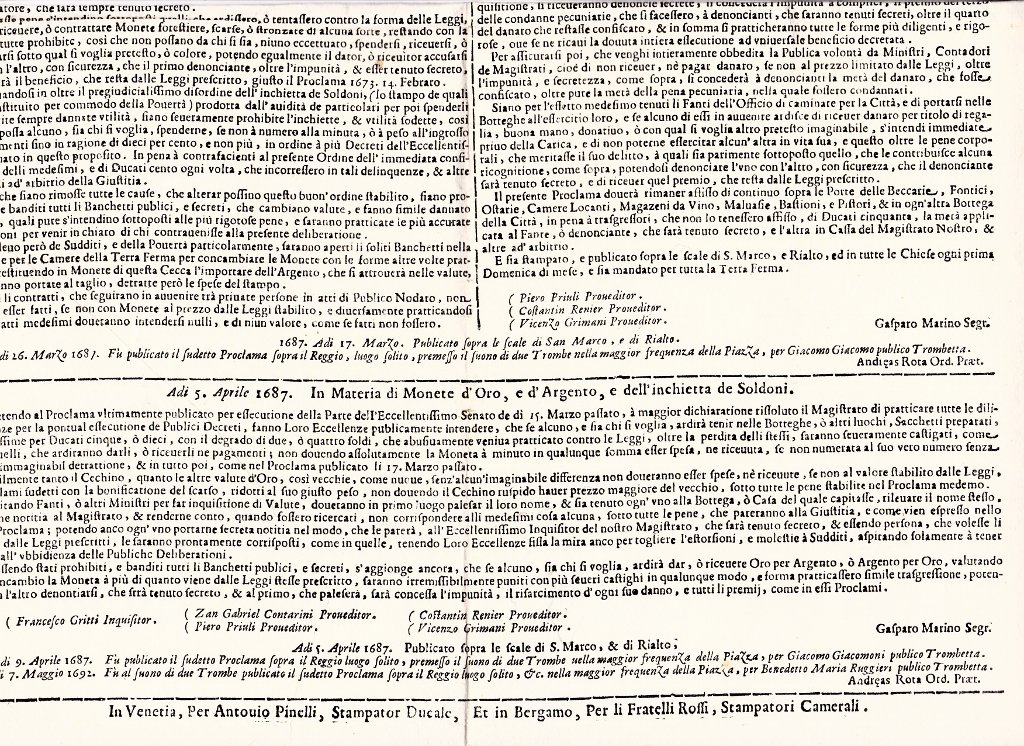 atore, che sarà tempre tenuto secreto.
ſe pene s'intendino ſottopoſti quelli, che ardiſſero, ò tentaſſero contro la forma delle Leggi,
riceuere, ò contrattare Monete foreſtiere, ſcarſe, ò ſtronzate di alcuna ſorte, reſtando con la
tutte prohibite, così che non poſſano da chi ſi ſia, niuno eccettuato, ſpenderſi, riceuerſi, ò
arſi ſotto qual ſi voglia preteſto, ò colore, potendo egualmente il dator, ò riceuitor accuſarſi
n l'altro, con ſicurezza, che il primo denonciante, oltre l'impunità, & eſſer tenuto ſecreto,
rà il beneficio, che reſta dalle Leggi preſcritto, giuſto il Proclama 1673. 14. Febraro.
andoſi in oltre il pregiudicialiſſimo diſordine dell'inchietta de Soldoni, (lo ſtampo de quali
ſtituito per commodo della Pouertà) prodotta dall'auidità de particolari per poi ſpenderli
ite ſempre dannate vtilità, ſiano ſeueramente prohibite l'inchiette, & vtilità ſodette, così
poſſa alcuno, ſia chi ſi voglia, ſpenderne, ſe non à numero alla minuta, ò à peſo all'ingroſſo
menti ſino in ragione di dieci per cento, e non più, in ordine à più Decreti dell'Eccellentiſ-
nato in queſto propoſito. In pena à contrafacienti al preſente Ordine dell'immediata confi-
delli medeſimi, e di Ducati cento ogni volta, che incorreſſero in tali delinquenze, & altre
li ad'arbitrio della Giuſtitia.
che ſiano rimoſſe tutte le cauſe, che alterar poſſino queſto buon'ordine ſtabilito, ſiano pro-
e banditi tutti li Banchetti publici, e ſecreti, che cambiano valute, e fanno ſimile dannato
, quali pure s'intendino ſottopoſti alle più rigoroſe pene, e ſaranno pratticate le più accurate
oni per venir in chiaro di chi contraueniſſe alla preſente deliberatione.
leuo però de Sudditi, e della Pouertà particolarmente, ſaranno aperti li ſoliti Banchetti nella
e per le Camere della Terra Ferma per concambiare le Monete con le forme altre volte prat-
reſtituendo in Monete di queſta Cecca l'importare dell'Argento, che ſi attrouerà nelle valute,
anno portate al taglio, detratte però le ſpeſe del ſtampo.
li contratti, che ſeguirano in auuenire trà priuate perſone in atti di Publico Nodaro, non
eſſer fatti, ſe non con Monete al prezzo dalle Leggi ſtabilito, e diuerſamente pratticandoſi
atti medeſimi doueranno intenderſi nulli, e di niun valore, come ſe fatti non foſſero.
quiſitione, ſi riceueranno denoncie ſecrete,
delle condanne pecuniarie, che ſi faceſſero, à denoncianti, che ſaranno tenuti ſecreti, oltre il quarto
del danaro che reſtaſſe confiſcato, & in ſomma ſi pratticheranno tutte le forme più diligenti, e rigo-
roſe, oue ſe ne ricaui la douuta intiera eſſecutione ad vniuerſale beneficio decretata.
Per aſſicurarſi poi, che venghi intieramente obbedita la Publica volontà da Miniſtri, Contadori
de Magiſtrati, cioè di non riceuer, nè pagar danaro, ſe non al prezzo limitato dalle Leggi, oltre
l'impunità, e ſecretezza, come ſopra, ſi concederà à denoncianti la metà del danaro, che foſſe
confiſcato, oltre pure la metà della pena pecuniaria, nella quale foſſero condannati.
Siano per l'effetto medeſimo tenuti li Fanti dell'Officio di caminare per la Città, e di portarſi nelle
Botteghe all'eſſercitio loro, e ſe alcuno di eſſi in auuenire ardiſce di riceuer danaro per titolo di rega-
lia, buona mano, donatiuo, ò con qual ſi voglia altro preteſto imaginabile, s'intendi immediate
priuo della Carica, e di non poterne eſſercitar alcun'altra in vita ſua, e queſto oltre le pene corpo-
rali, che meritaſſe il ſuo delitto, à quali ſia parimente ſottopoſto quello, che le contribuiſce alcuna
ricognitione, come ſopra, potendoſi denonciare l'vno con l'altro, con ſicurezza, che il denonciante
ſarà tenuto ſecreto, e di riceuer quel premio, che reſta dalle Leggi preſcritto.
Il preſente Proclama douerà rimaner affiſſo di continuo ſopra le Porte delle Beccarie, Fontici,
Oſtarie, Camere Locanti, Magazeni da Vino, Maluaſie, Baſtioni, e Piſtori, & in ogn'altra Bottega
della Città, in pena à traſgreſſori, che non lo teneſſero affiſſo, di Ducati cinquanta, la metà appli-
cata al Fante, ò denonciante, che ſarà tenuto ſecreto, e l'altra in Caſſa del Magiſtrato Noſtro, &
altre ad'arbitrio.
E ſia ſtampato, e publicato ſopra le ſcale di S. Marco, e Rialto, ed in tutte le Chieſe ogni prima
Domenica di meſe, e ſia mandato per tutta la Terra Ferma.
( Piero Priuli Proueditor.
( Coſtantin Renier Proueditor.
( Vicenzo Grimani Proueditor.
Gaſparo Marino Segr.
1687. Adi 17. Marzo. Publicato ſopra le ſcale di San Marco, e di Rialto.
di 26. Marzo 1687. Fù publicato il ſudetto Proclama ſopra il Reggio, luogo ſolito, premeſſo il ſuono di due Trombe nella maggior frequenza della Piazza, per Giacomo Giacomo publico Trombetta.
Andreas Rota Ord. Præt.
Adi 5. Aprile 1687. In Materia di Monete d'Oro, e d'Argento, e dell'inchietta de Soldoni.
tendo al Proclama vltimamente publicato per eſſecutione della Parte dell'Eccellentiſſimo Senato de dì 15. Marzo paſſato, à maggior dichiaratione riſſoluto il Magiſtrato di pratticare tutte le dili-
ze per la pontual eſſecutione de Publici Decreti, fanno Loro Eccellenze publicamente intendere, che ſe alcuno, e ſia chi ſi voglia, ardirà tenir nelle Botteghe, ò altri luochi, Sacchetti preparati,
ſſime per Ducati cinque, ò dieci, con il degrado di due, ò quattro ſoldi, che abuſiuamente veniua pratticato contro le Leggi, oltre la perdita delli ſteſſi, ſaranno ſeueramente caſtigati, come
nelli, che ardiranno darli, ò riceuerli ne pagamenti; non douendo aſſolutamente la Moneta à minuto in qualunque ſomma eſſer ſpeſa, ne riceuuta, ſe non numerata al ſuo vero numero ſenza
immaginabil detrattione, & in tutto poi, come nel Proclama publicato li 17. Marzo paſſato.
ilmente tanto il Cechino, quanto le altre valute d'Oro, così vecchie, come nuoue, ſenz'alcun'imaginabile differenza non doueranno eſſer ſpeſe, nè riceuute, ſe non al valore ſtabilito dalle Leggi,
lami ſudetti con la bonificatione del ſcarſo, ridotti al ſuo giuſto peſo, non douendo il Cechino ruſpido hauer prezzo maggiore del vecchio, ſotto tutte le pene ſtabilite nel Proclama medemo.
itando Fanti, ò altri Miniſtri per far inquiſitione di Valute, doueranno in primo luogo paleſar il loro nome, & ſia tenuto ogn'vno alla Bottega, ò Caſa del quale capitaſſe, rileuare il nome ſteſſo.
ne notitia al Magiſtrato, & renderne conto, quando foſſero ricercati, non corriſpondere alli medeſimi coſa alcuna, ſotto tutte le pene, che pareranno alla Giuſtitia, e come vien eſpreſſo nello
Proclama; potendo anco ogn'vno portarne ſecreta notitia nel modo, che le parerà, all'Eccellentiſſimo Inquiſitor del noſtro Magiſtrato, che ſarà tenuto ſecreto, & eſſendo perſona, che voleſſe li
dalle Leggi preſcritti, le ſaranno prontamente corriſpoſti, come in quelle, tenendo Loro Eccellenze fiſſa la mira anco per togliere l'eſtorſioni, e moleſtie à Sudditi, aſpirando ſolamente à tener
all'vbbidienza delle Publiche Deliberationi.
ſſendo ſtati prohibiti, e banditi tutti li Banchetti publici, e ſecreti, s'aggionge ancora, che ſe alcuno, ſia chi ſi voglia, ardirà dar, ò riceuere Oro per Argento, ò Argento per Oro, valutando
ncambio la Moneta à più di quanto viene dalle Leggi ſteſſe preſcritto, ſaranno irremiſſibilmente puniti con più ſeueri caſtighi in qualunque modo, e forma pratticaſſero ſimile traſgreſſione, poten-
l'altro denontiarſi, che ſarà tenuto ſecreto, & al primo, che paleſerà, ſarà conceſſa l'impunità, il riſarcimento d'ogni ſuo danno, e tutti li premij, come in eſſi Proclami.
( Franceſco Gritti Inquiſitor.
( Zan Gabriel Contarini Proueditor.
( Piero Priuli Proueditor.
( Coſtantin Renier Proueditor.
( Vicenzo Grimani Proueditor.
Gaſparo Marino Segr.
Adi 5. Aprile 1687. Publicato ſopra le ſcale di S. Marco, & di Rialto;
di 9. Aprile 1687. Fù publicato il ſudetto Proclama ſopra il Reggio luogo ſolito, premeſſo il ſuono di due Trombe nella maggior frequenza della Piazza, per Giacomo Giacomoni publico Trombetta.
di 7. Maggio 1692. Fù al ſuono di due Trombe publicato il ſudetto Proclama ſopra il Reggio luogo ſolito, &c. nella maggior frequenza della Piazza, per Benedetto Maria Ruggieri publico Trombetta.
Andreas Rota Ord. Præt.
In Venetia, Per Antonio Pinelli, Stampator Ducale, Et in Bergamo, Per li Fratelli Roſſi, Stampatori Camerali.